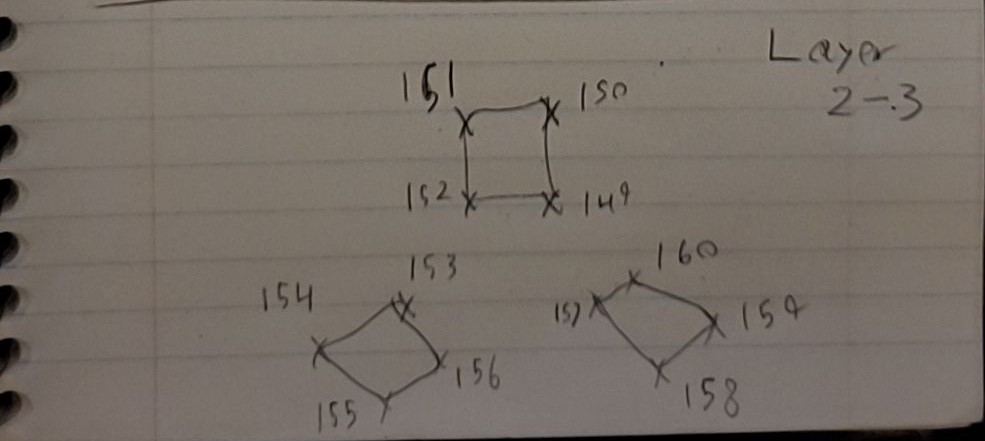 Layer
2-3
151 150
152 149
153
154
155
156
160
157
159
158